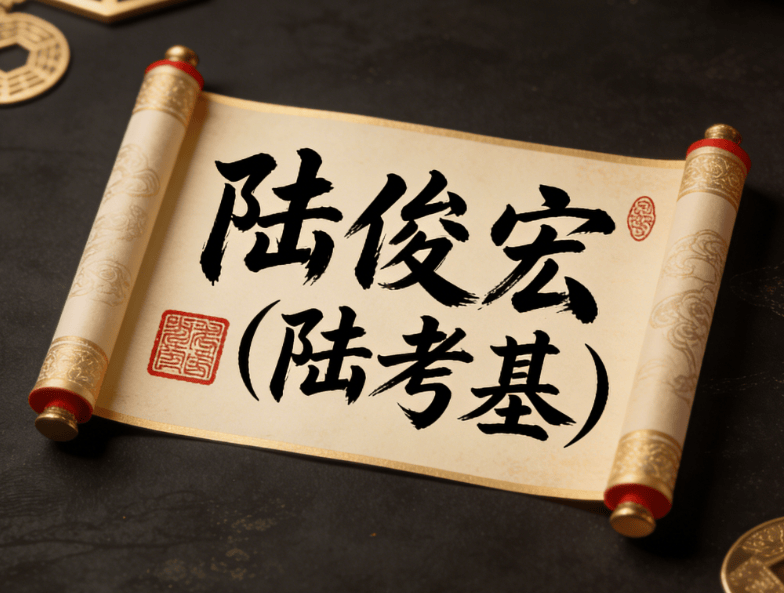 陆俊宏
(陆考基)